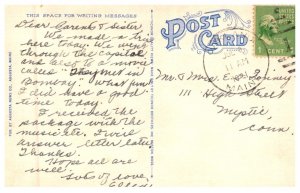 THIS SPACE FOR WRITING MESSAGES
POST CARD
Dear Parents & Sister
We made a trip
here today. We went
through the capitol
and also to a movie
called
"Conway". What fun
I did have a good
time today.
I received the
package with the
music etc, I will
answer letter later
Thanks.
Hope all are
well.
Lots of love,
1 CENT
11 AM
Mr & Mrs.
111 High Street
Mystic,
Conn.
PUB. BY AUGUSTA NEWS CO., AUGUSTA, MAINE